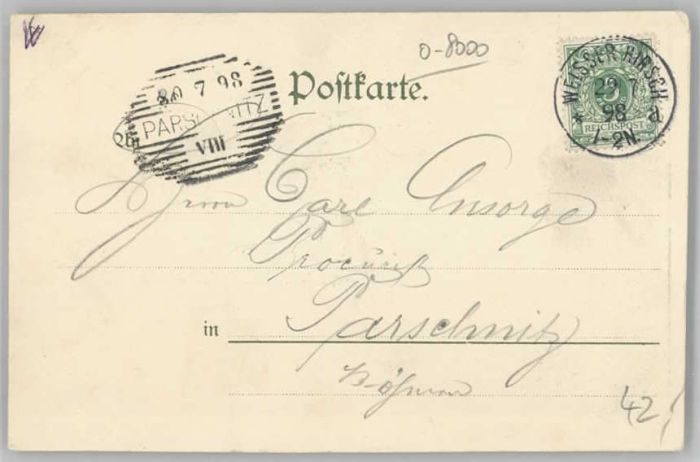 0-8000
30 7 98
PARSCHNITZ
VIII
Postkarte.
WEISSER HIRSCH
29 7
98
* d
1-2N.
5
REICHSPOST
Herrn Carl Ensorge
Procurist
in Parschnitz
Böhmen
42